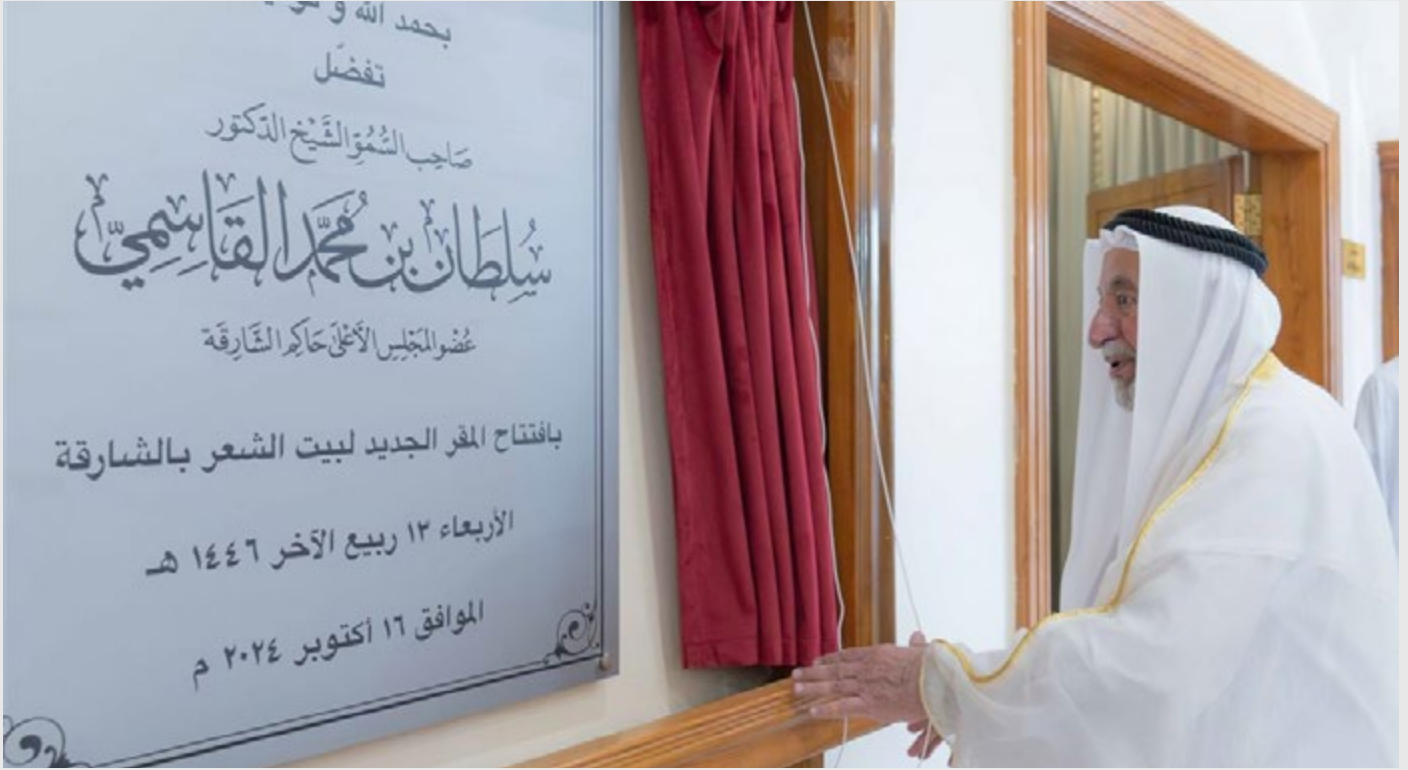 بحمد الله و
تفضّل
صَاحِب السُّمُوّ الشَّيْخ الدّكتور
سُلطَان بن مُحَمَّد القَاسِمِيّ
عُضْو المَجْلِس الأَعْلَىٰ حَاكِم الشَّارِقَة
بافتتاح المقر الجديد لبيت الشعر بالشارقة
الأربعاء ١٣ ربيع الآخر ١٤٤٦ هـ
الموافق ١٦ أكتوبر ٢٠٢٤ م